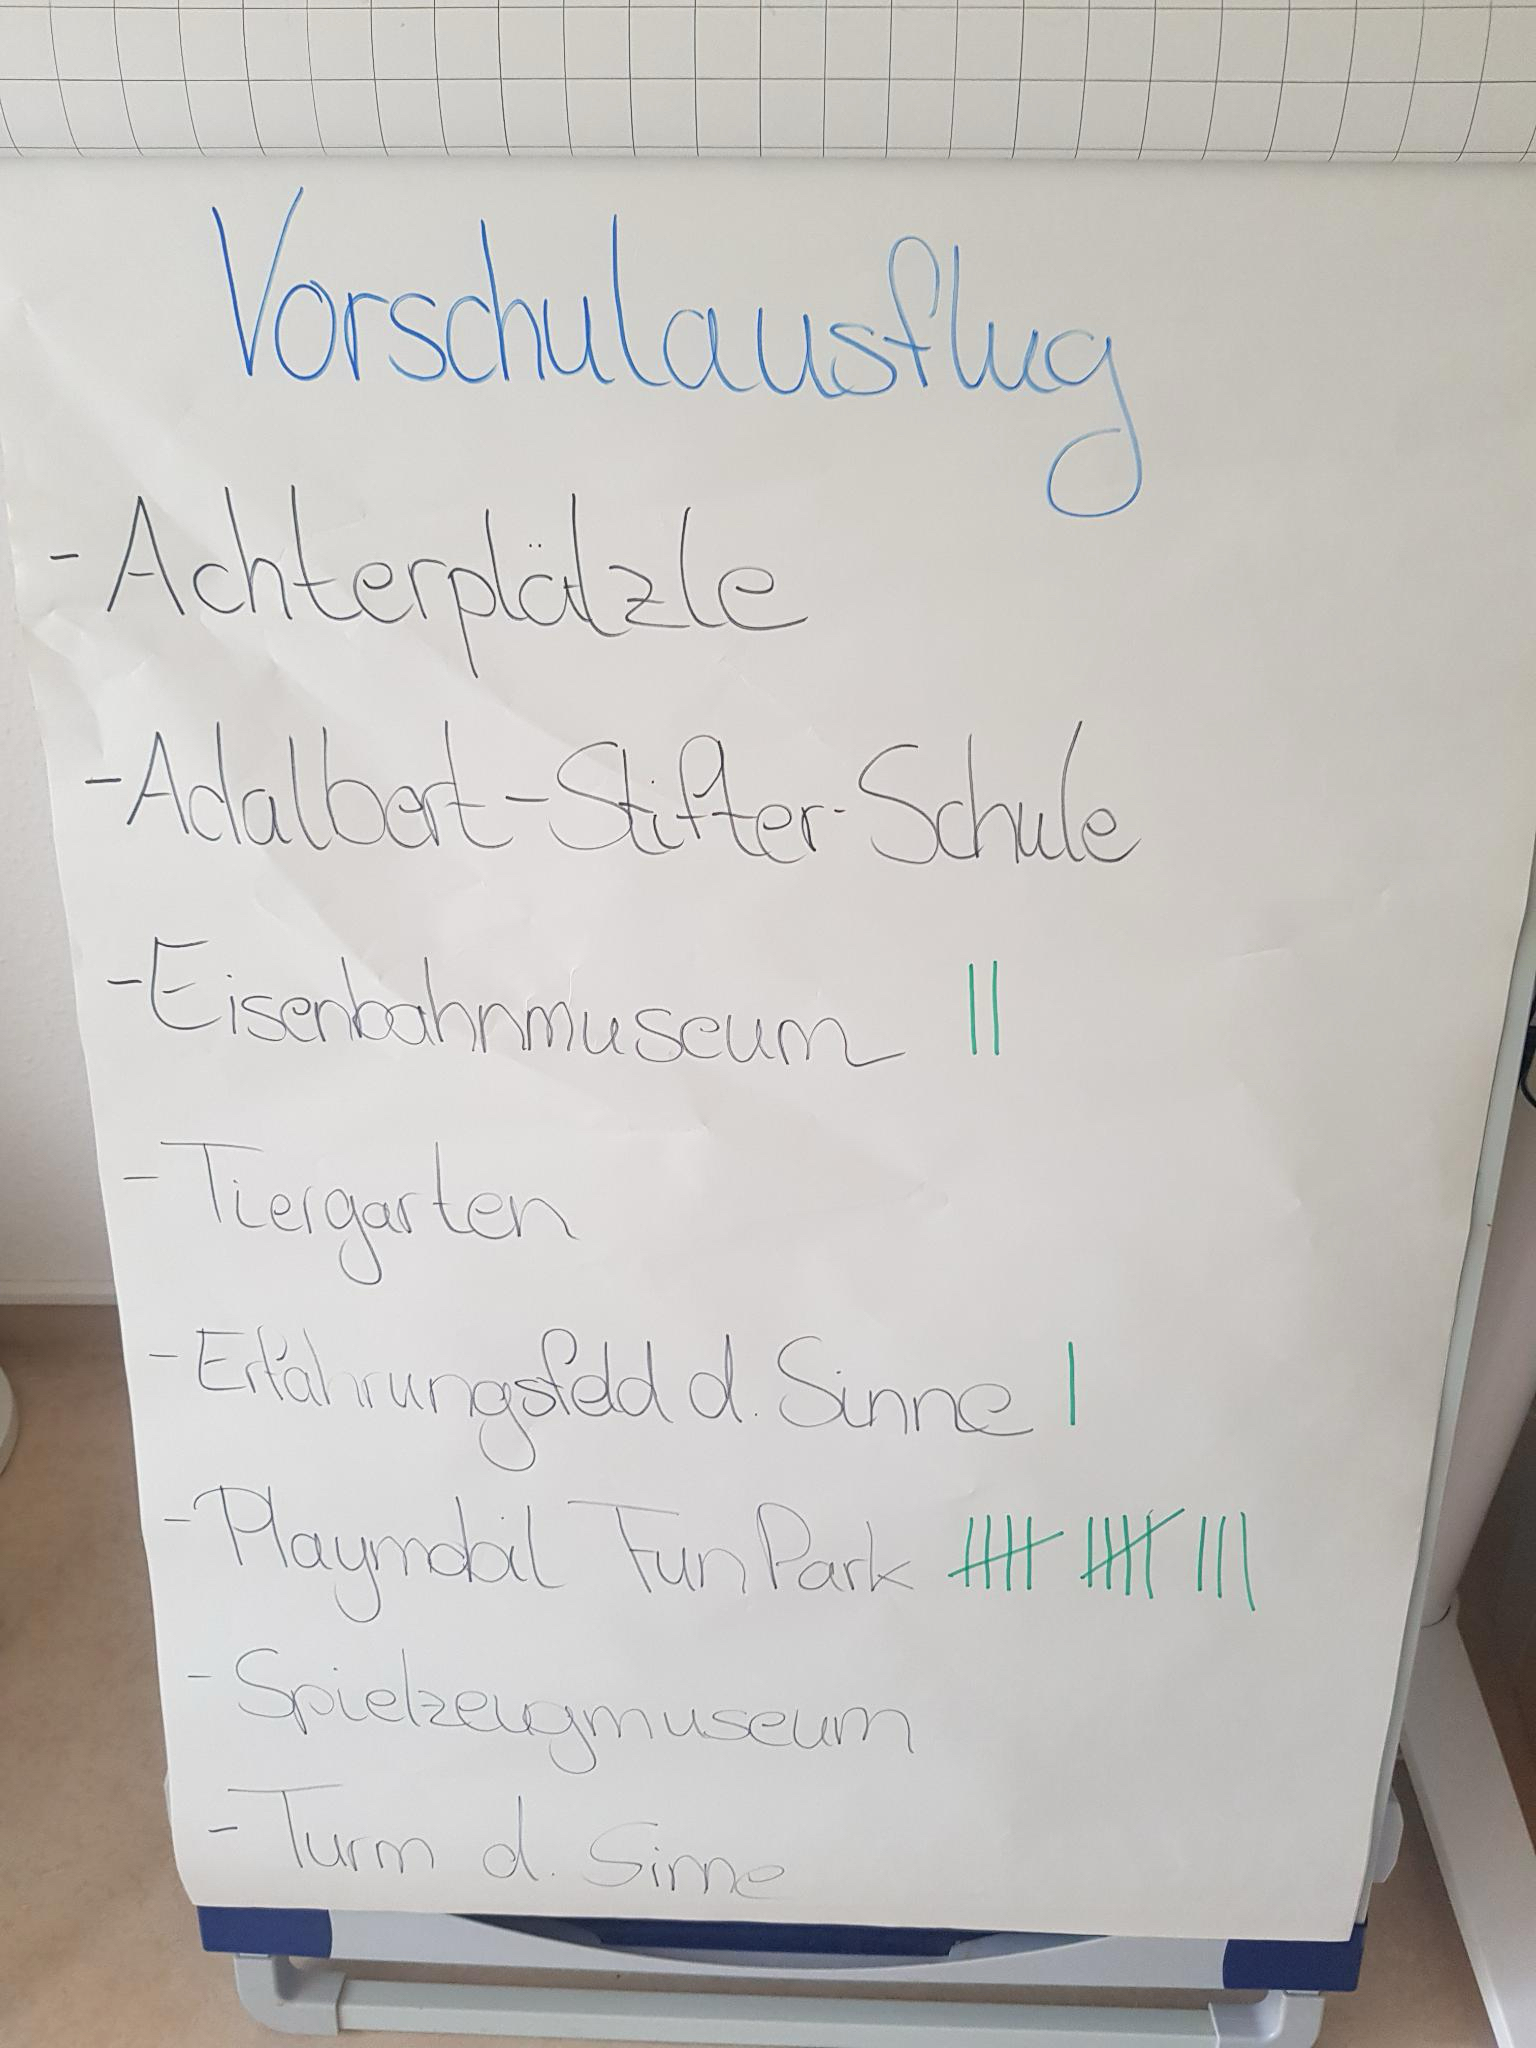 Vorschulausflug
- Achterplätzle
- Adalbert-Stifter-Schule
- Eisenbahnmuseum ||
- Tiergarten
- Erfahrungsfeld d. Sinne |
- Playmobil FunPark |||| |||| |||
- Spielzeugmuseum
- Turm d. Sinne